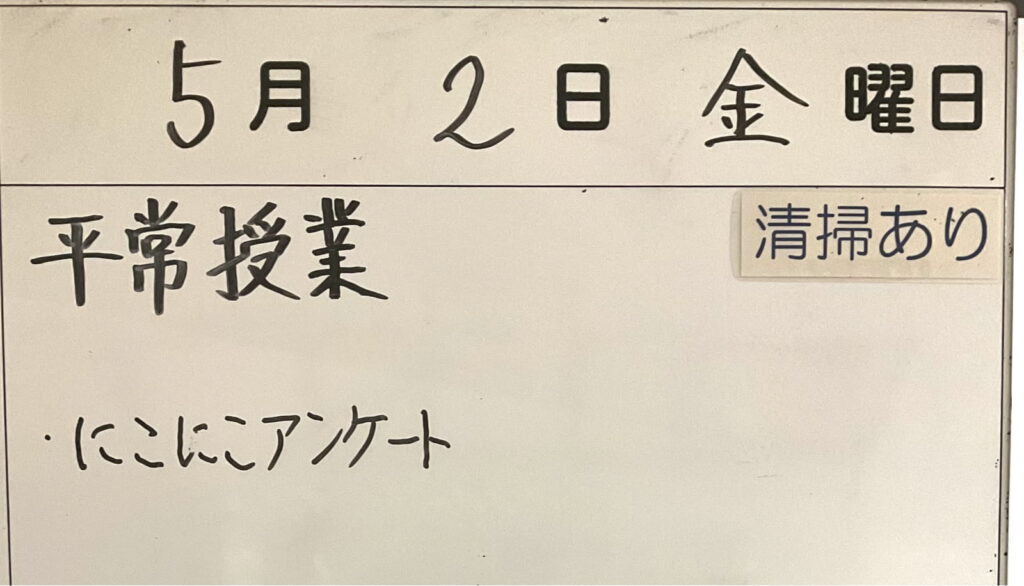 5月 2日 金曜日
平常授業 清掃あり
・にこにこアンケート